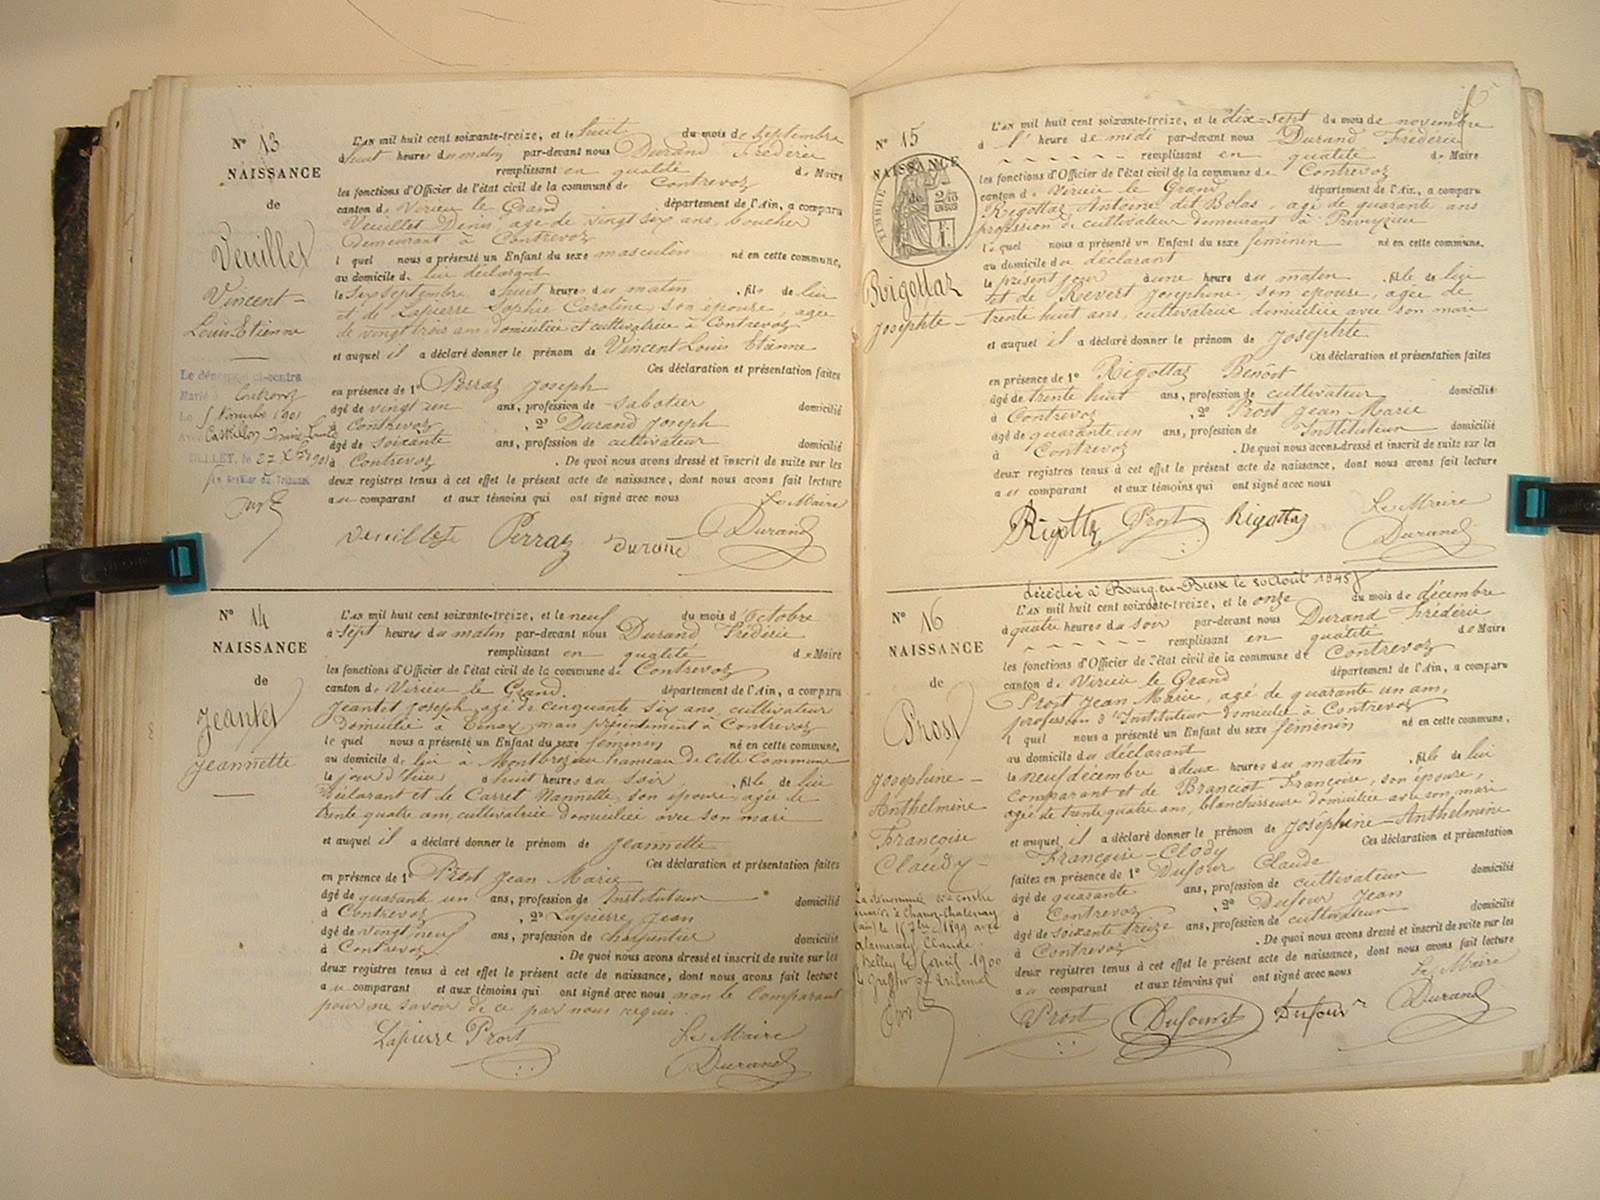 N° 13
NAISSANCE
de
Veuillet
Vincent-
Louis Etienne
Le dénommé ci-contre
Marié à Contrevoz
Le 5 Novembre 1901
Avec
BELLEY, le 27 Xbre 1901
Le Greffier du Tribunal
L'AN mil huit cent soixante-treize, et le huit du mois de septembre
à huit heures du matin par-devant nous Durand Frédéric
remplissant en qualité de Maire
les fonctions d'Officier de l'état civil de la commune de Contrevoz
canton de Virieu le Grand département de l'Ain, a comparu
Veuillet Denis, agé de vingt six ans, boucher
demeurant à Contrevoz
l quel nous a présenté un Enfant du sexe masculin né en cette commune,
au domicile de lui déclarant
le six septembre à huit heures du matin, fils de lui
et de Lapierre Sophie Caroline, son épouse, agée
de vingt trois ans, domiciliée et cultivatrice à Contrevoz
et auquel il a déclaré donner le prénom de Vincent Louis Etienne
Ces déclaration et présentation faites
en présence de 1° Perraz Joseph
âgé de vingt un ans, profession de sabotier domicilié
à Contrevoz, 2° Durand Joseph
âgé de soixante ans, profession de cultivateur domicilié
à Contrevoz. De quoi nous avons dressé et inscrit de suite sur les
deux registres tenus à cet effet le présent acte de naissance, dont nous avons fait lecture
au comparant et aux témoins qui ont signé avec nous
Le Maire
Veuillet Perraz Durand Durand
N° 14
NAISSANCE
de
Jeantet
Jeannette
L'AN mil huit cent soixante-treize, et le neuf du mois d'Octobre
à sept heures du matin par-devant nous Durand Frédéric
remplissant en qualité de Maire
les fonctions d'Officier de l'état civil de la commune de Contrevoz
canton de Virieu le Grand. département de l'Ain, a comparu
Jeantet Joseph, agé de cinquante six ans, cultivateur
domicilié à mais présentement à Contrevoz
le quel nous a présenté un Enfant du sexe féminin né en cette commune,
au domicile de lui à hameau de Cette Commune
le jour d'hier à huit heures du soir, fille de lui
déclarant et de Carret Nannette, son épouse, agée de
trente quatre ans, cultivatrice domiciliée avec son mari
et auquel il a déclaré donner le prénom de Jeannette
Ces déclaration et présentation faites
en présence de 1° Prost Jean Marie
âgé de quarante un ans, profession de Instituteur domicilié
à Contrevoz, 2° Lapierre Jean
âgé de vingt neuf ans, profession de charpentier domicilié
à Contrevoz. De quoi nous avons dressé et inscrit de suite sur les
deux registres tenus à cet effet le présent acte de naissance, dont nous avons fait lecture
au comparant et aux témoins qui ont signé avec nous non le Comparant
pour ne savoir de ce par nous requis.
Lapierre Prost Le Maire
Durand
N° 15
NAISSANCE
de
TIMBRE
2/10
EN SUS
F.
1.
Rigottaz
Josephte-
L'AN mil huit cent soixante-treize, et le dix-sept du mois de novembre
à l' heure de midi par-devant nous Durand Frédéric
remplissant en qualité de Maire
les fonctions d'Officier de l'état civil de la commune de Contrevoz
canton de Virieu le Grand département de l'Ain, a comparu
Rigottaz Antoine dit Bolas, agé de quarante ans
profession de cultivateur demeurant à
le quel nous a présenté un Enfant du sexe féminin né en cette commune.
au domicile du déclarant
le présent jour à une heure du matin, fille de lui
et de Revert Josephine son épouse, agée de
trente huit ans, cultivatrice domiciliée avec son mari
et auquel il a déclaré donner le prénom de Josephte
Ces déclaration et présentation faites
en présence de 1° Rigottaz Benoît
âgé de trente huit ans, profession de cultivateur domicilié
à Contrevoz, 2° Prost Jean Marie
âgé de quarante un ans, profession de Instituteur domicilié
à Contrevoz. De quoi nous avons dressé et inscrit de suite sur les
deux registres tenus à cet effet le présent acte de naissance, dont nous avons fait lecture
au comparant et aux témoins qui ont signé avec nous
Le Maire
Rigottaz Prost Rigottaz Durand
décédée à Bourg-en-Bresse le 30 Août 1945
N° 16
NAISSANCE
de
Prost
Josephine-
Anthelmine
Françoise
Claudy-
La dénommée ci-contre
mariée à Chanoz-Chatenay
(Ain) le 1899 avec
Claude.
Belley le avril 1900
Le Greffier du Tribunal
L'AN mil huit cent soixante-treize, et le onze du mois de décembre
à quatre heures du soir par-devant nous Durand Frédéric
remplissant en qualité de Maire
les fonctions d'Officier de l'état civil de la commune de Contrevoz
canton de Virieu le Grand département de l'Ain, a comparu
Prost Jean Marie, agé de quarante un ans,
profession d'Instituteur domicilié à Contrevoz
l quel nous a présenté un Enfant du sexe féminin né en cette commune,
au domicile du déclarant
le neuf décembre à deux heures du matin, fille de lui
comparant et de Branciot Françoise, son épouse,
agée de trente quatre ans, blanchisseuse domiciliée avec son mari
et auquel il a déclaré donner le prénom de Joséphine-Anthelmine
Françoise-Clody Ces déclaration et présentation
faites en présence de 1° Dufour Claude
âgé de quarante ans, profession de cultivateur domicilié
à Contrevoz, 2° Dufour Jean
âgé de soixante treize ans, profession de cultivateur domicilié
à Contrevoz. De quoi nous avons dressé et inscrit de suite sur les
deux registres tenus à cet effet le présent acte de naissance, dont nous avons fait lecture
au comparant et aux témoins qui ont signé avec nous
Le Maire
Prost Dufour Dufour Durand